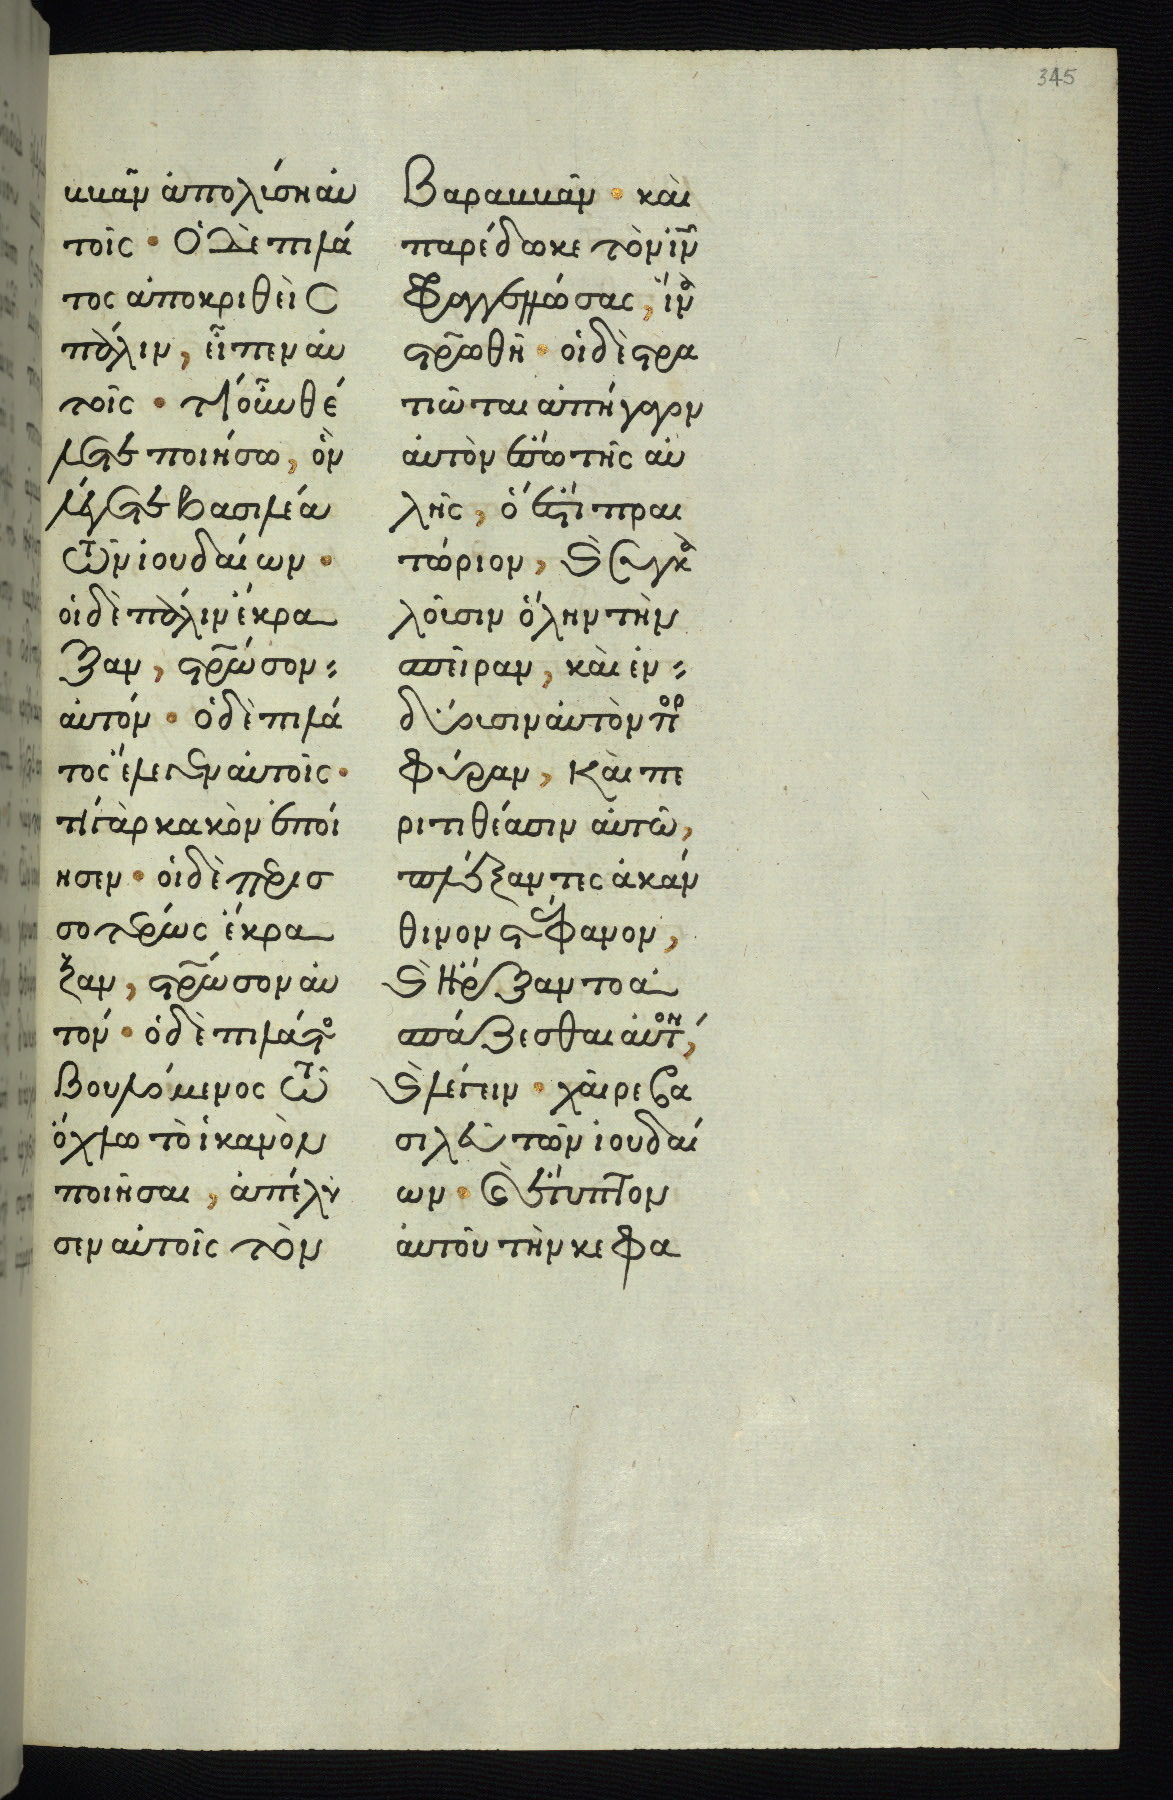 345
ββᾶν ἀπολύσῃ αὐ
τοῖς · Ὁ δὲ πιλά
τος ἀποκριθεὶς
πάλιν, εἶπεν αὐ
τοῖς · τί οὖν θέ
λετε ποιήσω, ὃν
λέγετε βασιλέα
τῶν ἰουδαίων ·
οἱ δὲ πάλιν ἔκρα
ξαν, σταύρωσον
αὐτόν · ὁ δὲ πιλά
τος ἔλεγεν αὐτοῖς ·
τί γὰρ κακὸν ἐποί
ησεν · οἱ δὲ περισ
σοτέρως ἔκρα
ξαν, σταύρωσον αὐ
τόν · ὁ δὲ πιλάτος
βουλόμενος τῶ
ὄχλω τὸ ἱκανὸν
ποιῆσαι, ἀπέλυ
σεν αὐτοῖς τὸν
Βαραββᾶν · καὶ
παρέδωκε τὸν ἰν
φραγγελλώσας, ἵνα
στρωθῆ · οἱ δὲ στρα
τιῶται ἀπήγαγον
αὐτὸν ἔσω τῆς αὐ
λῆς, ὅ ἐστι πραι
τώριον, καὶ συγκα
λοῦσιν ὅλην τὴν
σπεῖραν, καὶ ἐν
δύουσιν αὐτὸν πορ
φύραν, καὶ πε
ριτιθέασιν αὐτῶ,
πλέξαντες ἀκάν
θινον στέφανον,
καὶ ἤρξαντο ἀ
σπάζεσθαι αὐτὸν,
καὶ λέγειν · χαῖρε βα
σιλεῦ τῶν ἰουδαί
ων · καὶ ἔτυπτον
αὐτοῦ τὴν κεφα